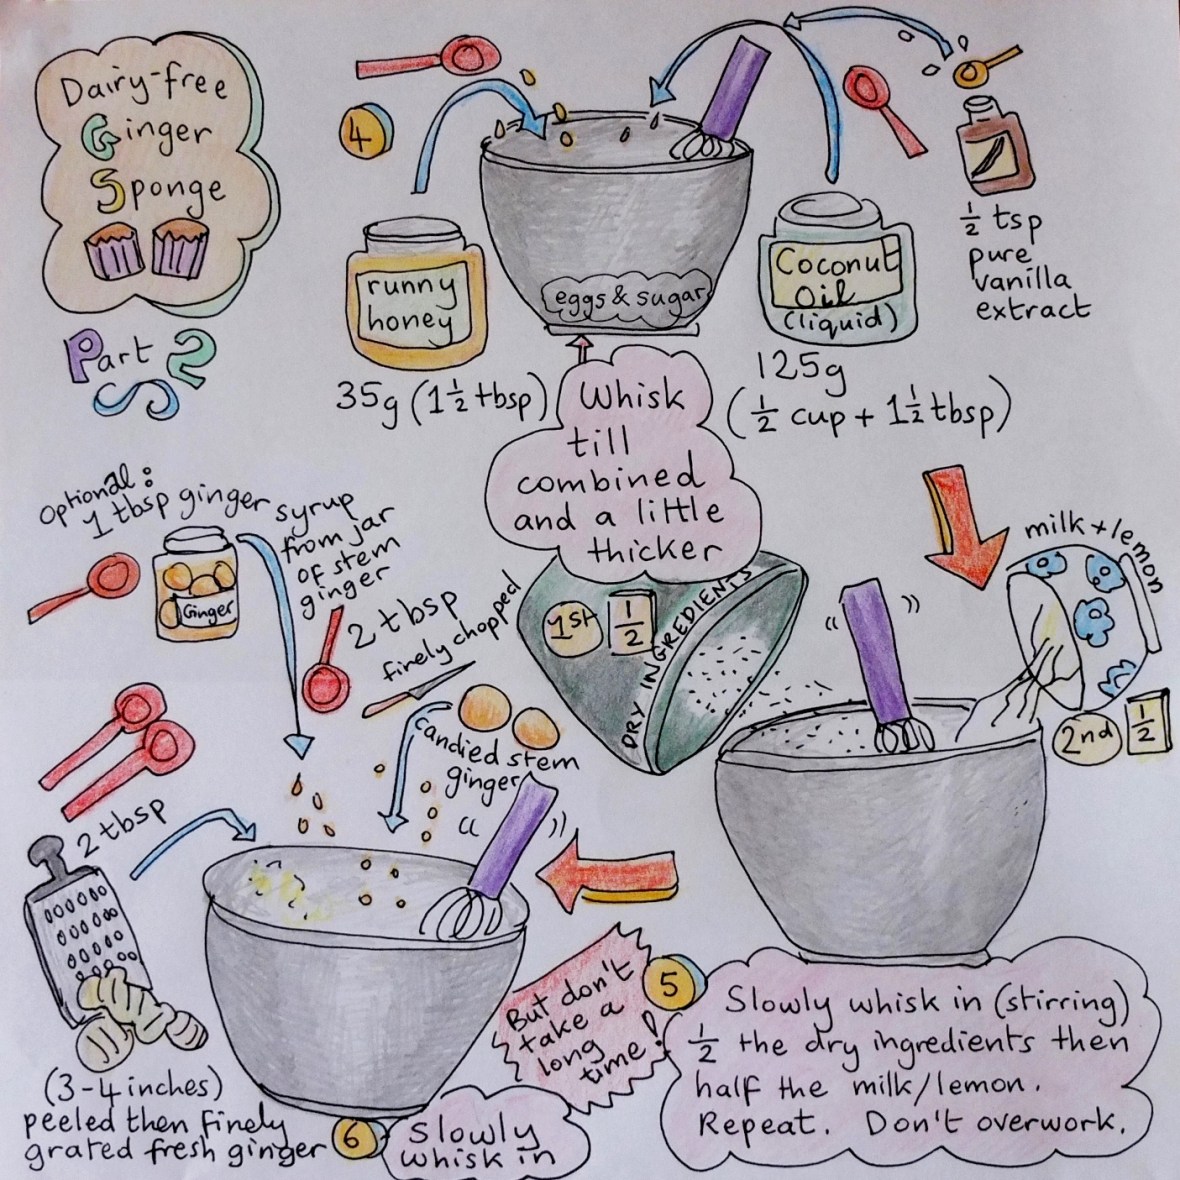 Dairy-free
Ginger
Sponge
Part 2
4
runny
honey
35g (1½ tbsp)
eggs & sugar
Coconut
Oil
(liquid)
125g
(½ cup + 1½ tbsp)
½ tsp
pure
vanilla
extract
Whisk
till
combined
and a little
thicker
optional:
1 tbsp ginger syrup
from jar
of stem
ginger
Ginger
2 tbsp
finely chopped
candied stem
ginger
1st ½
DRY INGREDIENTS
milk + lemon
2nd ½
5
Slowly whisk in (stirring)
½ the dry ingredients then
half the milk/lemon.
Repeat. Don't overwork.
But don't
take a
long
time!
2 tbsp
(3-4 inches)
peeled then finely
grated fresh ginger
6
slowly
whisk in